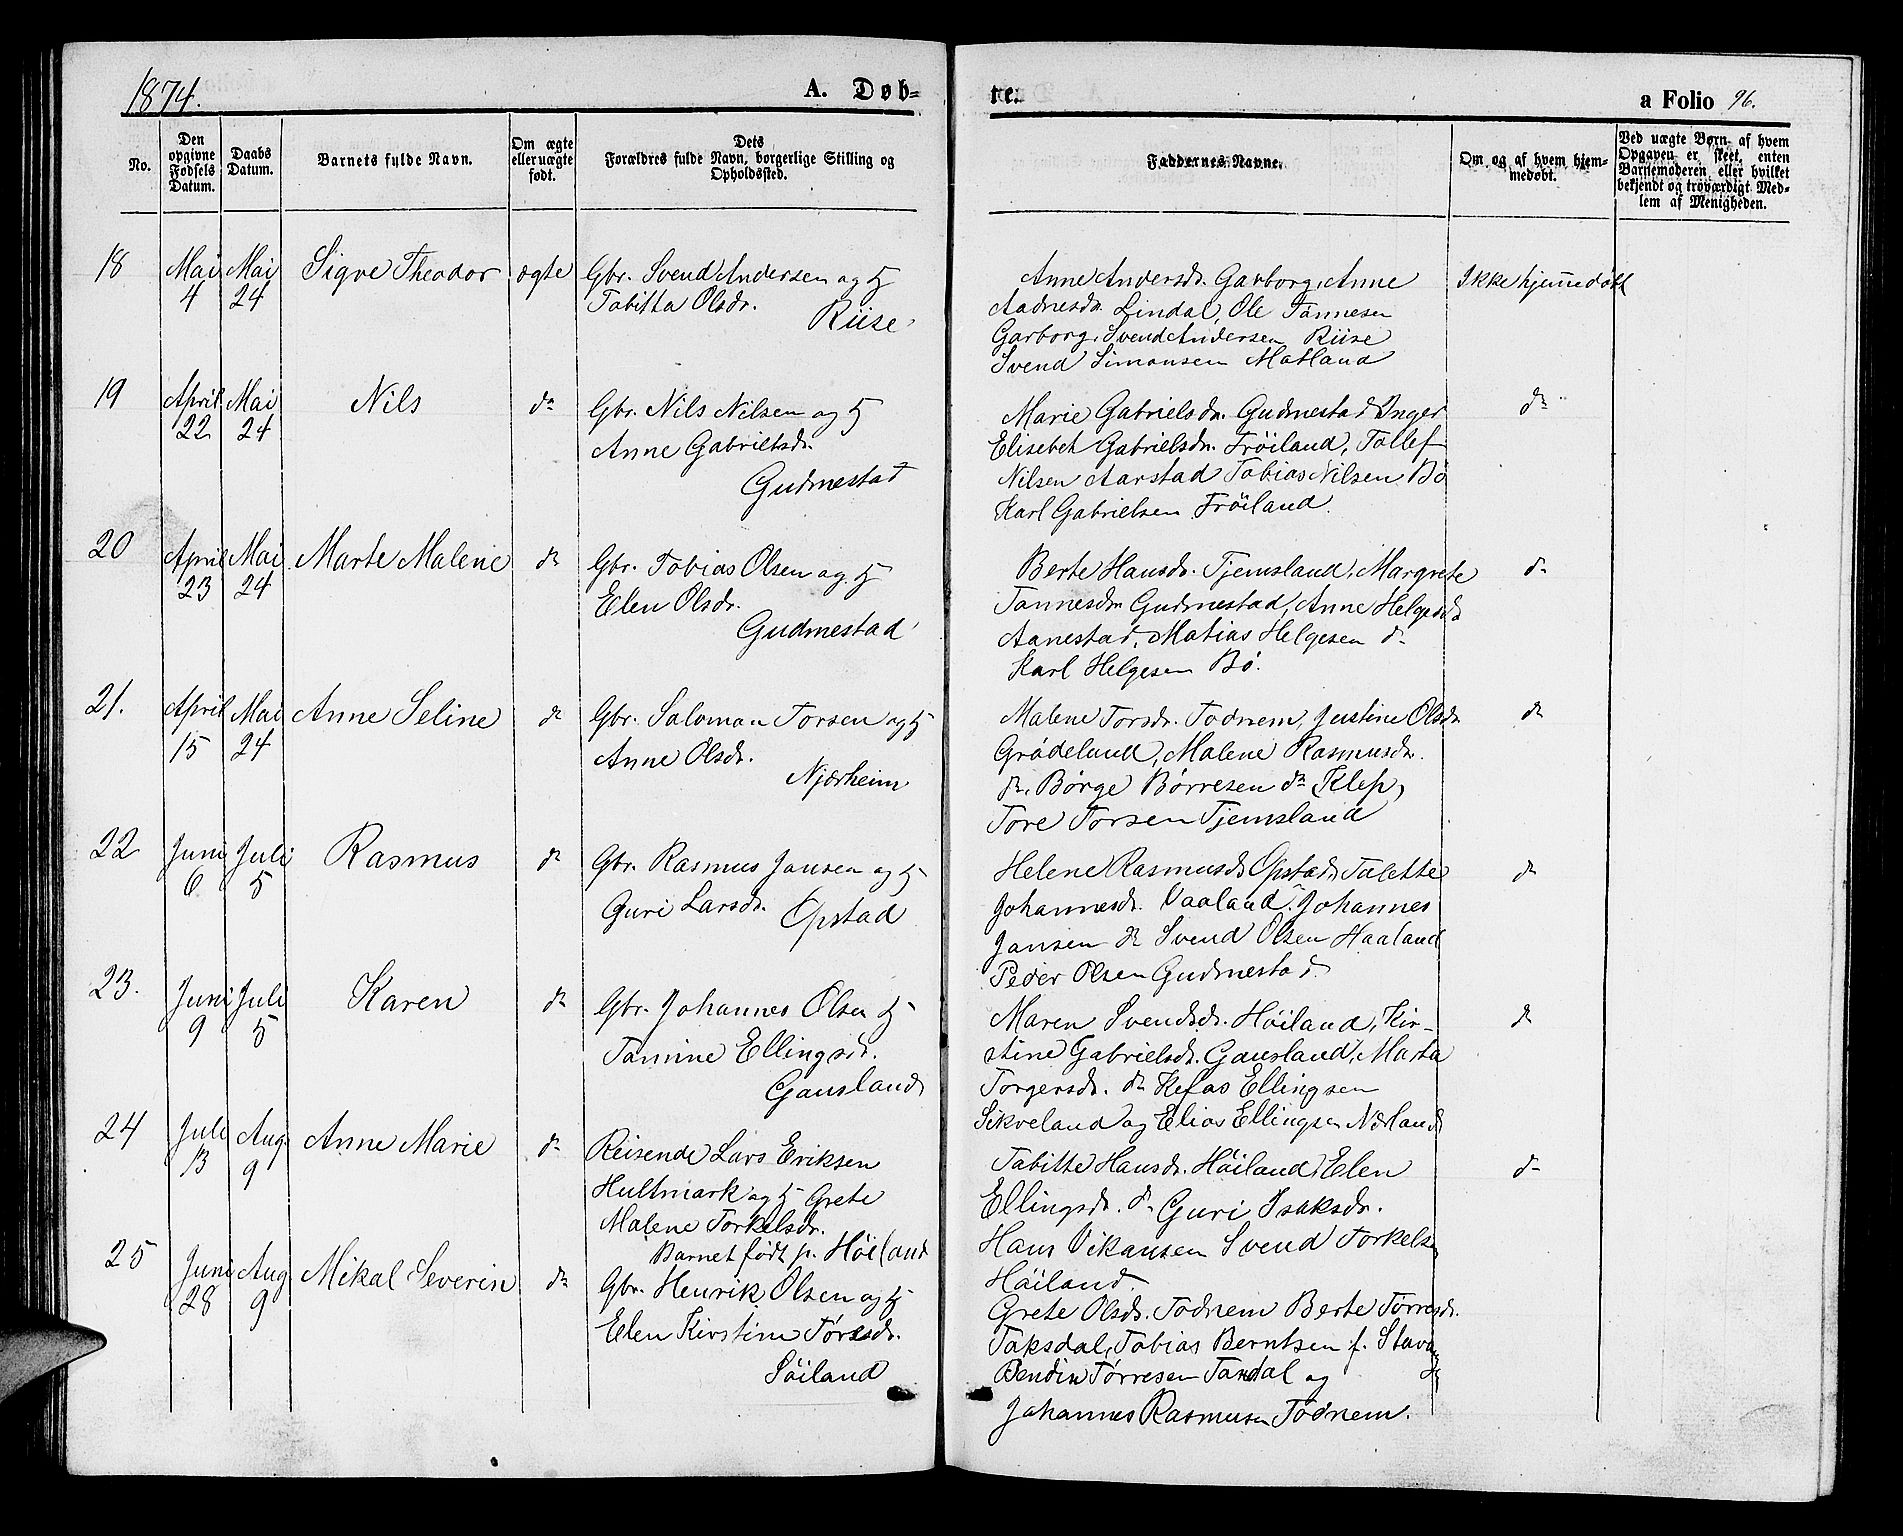 1874.
A. Døb-
te.
a Folio 96.
No.
Den opgivne Fødsels Datum.
Daabs Datum.
Barnets fulde Navn.
Om ægte eller uægte født.
Dets Forældres fulde Navn, borgerlige Stilling og Opholdssted.
Faddernes Navne.
Om og af hvem hjemmedøbt.
Ved uægte Børn, af hvem Opgaven er skeet, enten Barnemoderen eller hvilket bekjendt og troværdigt Medlem af Menigheden.
18 Mai 4 Mai 24 Sigve Theodor ægte
Gbr. Svend Andersen og H
Tabitta Olsdr.
Riise
Anne Andersdr. Garborg, Anne
Aadnesdr. Lindal, Ole Tønnesen
Garborg, Svend Andersen Riise
Svend Simonsen Matland
Ikke hjemmedøbt
19 April 22 Mai 24 Nils do
Gbr. Nils Nilsen og H
Anne Gabrielsdr.
Gudmestad
Marie Gabrielsdr. Gudmestad Inger
Elisebet Gabrielsdr. Frøiland, Tollef
Nilsen Aarstad Tobias Nilsen Bø
Karl Gabrielsen Frøiland.
do
20 April 23 Mai 24 Marte Malene do
Gbr. Tobias Olsen og H
Elen Olsdr.
Gudmestad
Berte Hansdr. Tjemsland, Margrete
Tønnesdr Gudmestad, Anne Helgesdr
Aanestad, Matias Helgesen do
Karl Helgesen Bø.
do
21. April 15 Mai 24 Anne Seline do
Gbr. Salomon Torsen og H
Anne Olsdr.
Njærheim
Malene Torsdr. Todnem, Justine Olsdr
Grødeland, Malene Rasmusdr.
do, Børge Børresen do Klep,
Tore Torsen Tjemsland
do
22 Juni 6 Juli 5 Rasmus do
Gbr. Rasmus Jansen og H
Guri Larsdr. Opstad
Helene Rasmusdr Opstad, Talette
Johannesdr. Vaaland, Johannes
Jansen do Svend Olsen Haaland
Peder Olsen Gudmestad
do
23. Juni 9 Juli 5 Karen do
Gbr. Johannes Olsen H
Tamine Ellingsdr.
Gausland
Maren Svendsdr. Høiland, Kir-
stine Gabrielsdr. Gausland, Marta
Torgersdr. do Kefas Ellingsen
Sikveland og Elias Ellingsen Nærland
do
24 Juli 13 Aug 9 Anne Marie do
Reisende Lars Eriksen
Hultmark og H Grete
Malene Torkelsdr.
Barnet født p. Høiland
Tabitte Hansdr. Høiland, Elen
Ellingsdr. do Guri Isaksdr.
Hans Vikansen Svend Torkelsen
Høiland
do
25 Juni 28 Aug 9 Mikal Severin do
Gbr. Henrik Olsen og H
Elen Kirstine Tørresdr.
Søiland
Grete Olsdr. Todnem Berte Tørresdr.
Taksdal, Tobias Berntsen f. Stavan
Bendik Tørresen Tandal og
Johannes Rasmusen Todnem.